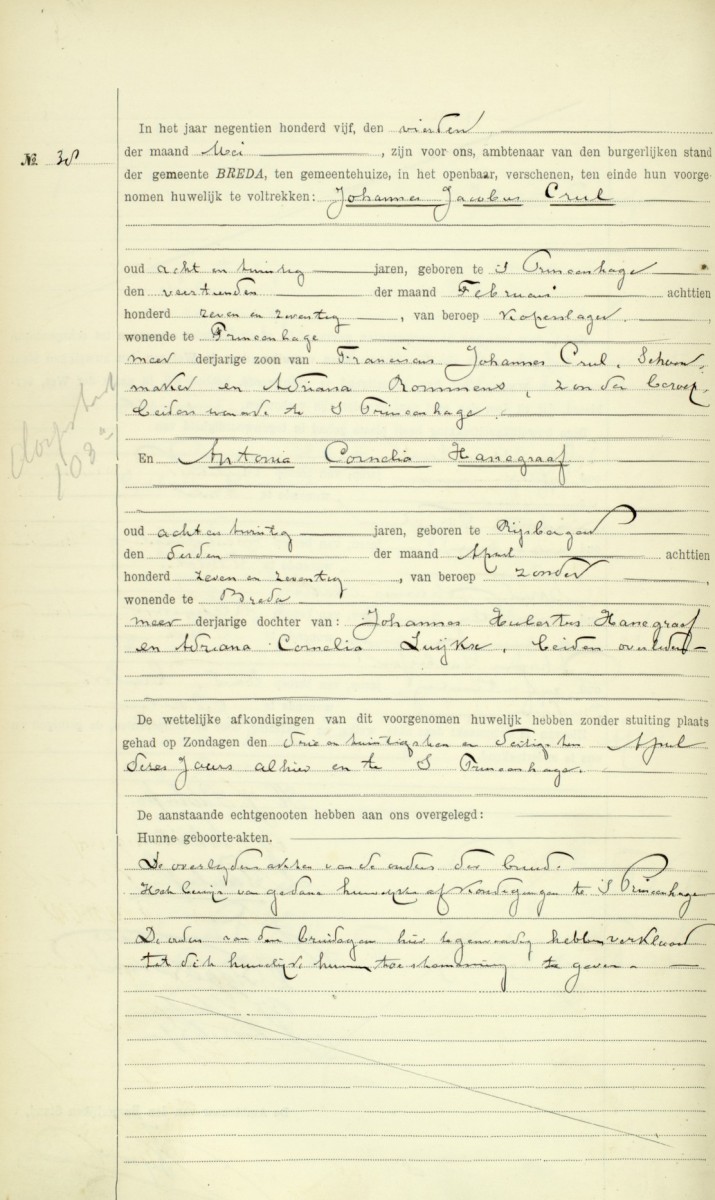 In het jaar negentien honderd vijf, den vierden
№. 38
der maand Mei , zijn voor ons, ambtenaar van den burgerlijken stand
der gemeente BREDA, ten gemeentehuize, in het openbaar, verschenen, ten einde hun voorge-
nomen huwelijk te voltrekken: Johannes Jacobus Crul
oud acht en twintig jaren, geboren te 'S Princenhage
den veertienden der maand Februari achttien
honderd zeven en zeventig , van beroep Koperslager ,
wonende te Princenhage
meer derjarige zoon van Franciscus Johannes Crul, Schoen-
maker en Adriana Rommens, zonder beroep,
beiden wonende te 'S Princenhage.
En Antonia Cornelia Hanegraaf
oud acht en twintig jaren, geboren te Rijsbergen
den derden der maand April achttien
honderd zeven en zeventig , van beroep zonder ,
wonende te Breda
meer derjarige dochter van: Johannes Hubertus Hanegraaf
en Adriana Cornelia Luijkx, beiden overleden
De wettelijke afkondigingen van dit voorgenomen huwelijk hebben zonder stuiting plaats
gehad op Zondagen den drie en twintigsten en dertigsten April
dezes Jaars alhier en te 'S Princenhage.
De aanstaande echtgenooten hebben aan ons overgelegd:
Hunne geboorte-akten.
De overlijdensakten van de ouders der bruid.
Het bewijs van gedane huwelijks afkondigingen te 'S Princenhage
De ouders van den bruidegom hier tegenwoordig hebben verklaard
tot dit huwelijk hunne toestemming te geven.